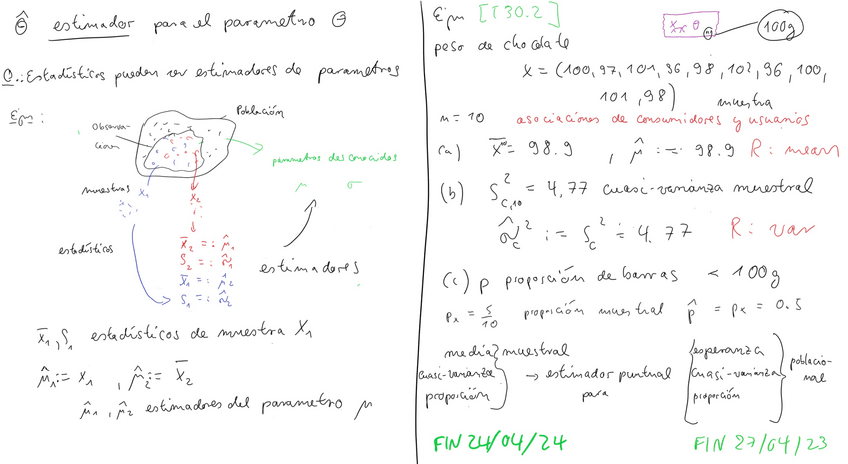 θ̂ estimador para el parametro θ
O.: Estadísticos pueden ser estimadores de parametros
Ejm:
Población
Observa-
ción
parametros desconocidos
μ σ
muestras X₁
X₂
estadísticos
x̄₂ =: μ̂₁
S₂ =: σ̂₁
x̄₁ =: μ̂₂
S₁ =: σ̂₂
estimadores
x̄₁, S₁ estadísticos de muestra X₁
μ̂₁ := x₁ , μ̂₂ := x̄₂
μ̂₁, μ̂₂ estimadores del parametro μ
Ejm [T30.2]
100g
peso de chocolate
X = (100, 97, 101, 96, 98, 102, 96, 100,
101, 98) muestra
n = 10 asociaciones de consumidores y usuarios
(a) x̄¹⁰ = 98.9 , μ̂ := 98.9 R: mean
(b) S²c,10 = 4,77 cuasi-varianza muestral
σ̂c² := Sc² = 4.77 R: var
(c) p proporción de barras < 100g
pₓ = 5/10 proporción muestral p̂ = pₓ = 0.5
media
cuasi-varianza
proporción
muestral
→ estimador puntual
para
esperanza
cuasi-varianza
proporción
poblacio-
nal
FIN 24/04/24
FIN 27/04/23